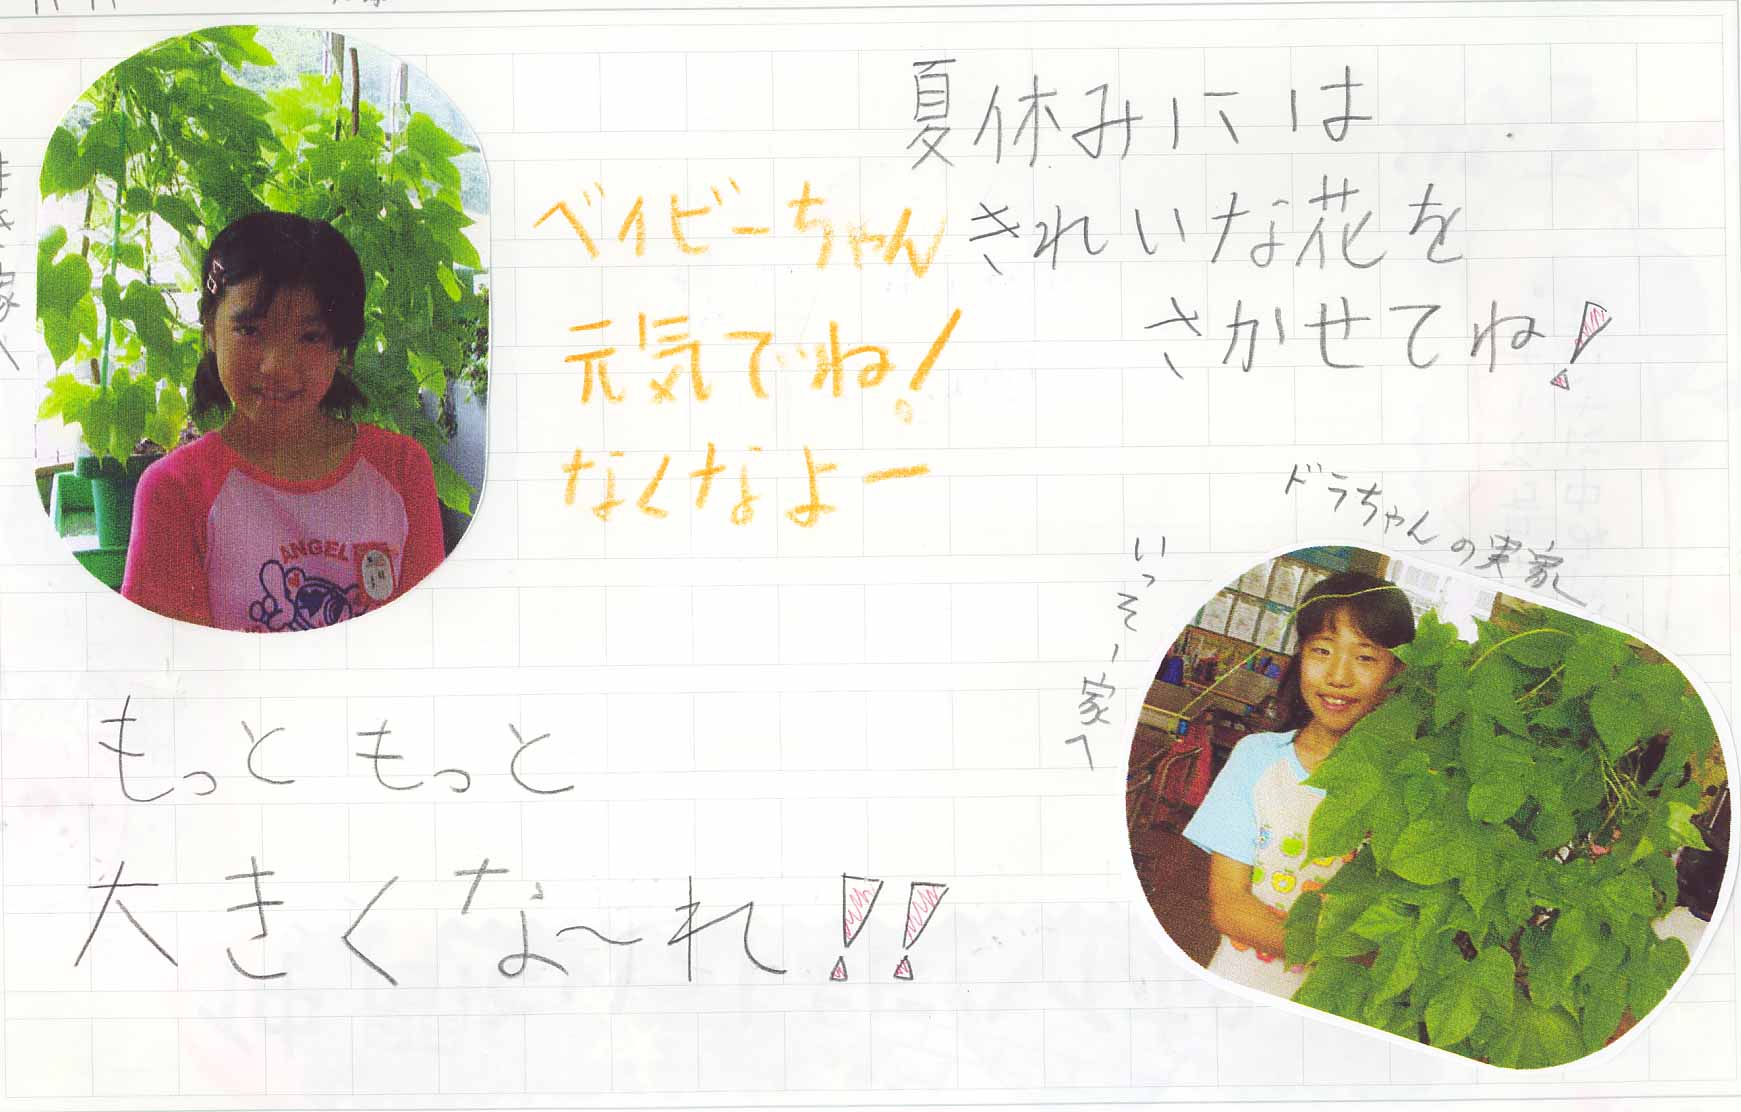 夏休みには
きれいな花を
さかせてね!
ベイビーちゃん
元気でね!
なくなよー
ANGEL
ドラちゃんの実家
いっそー家へ
もっともっと
大きくな〜れ!!